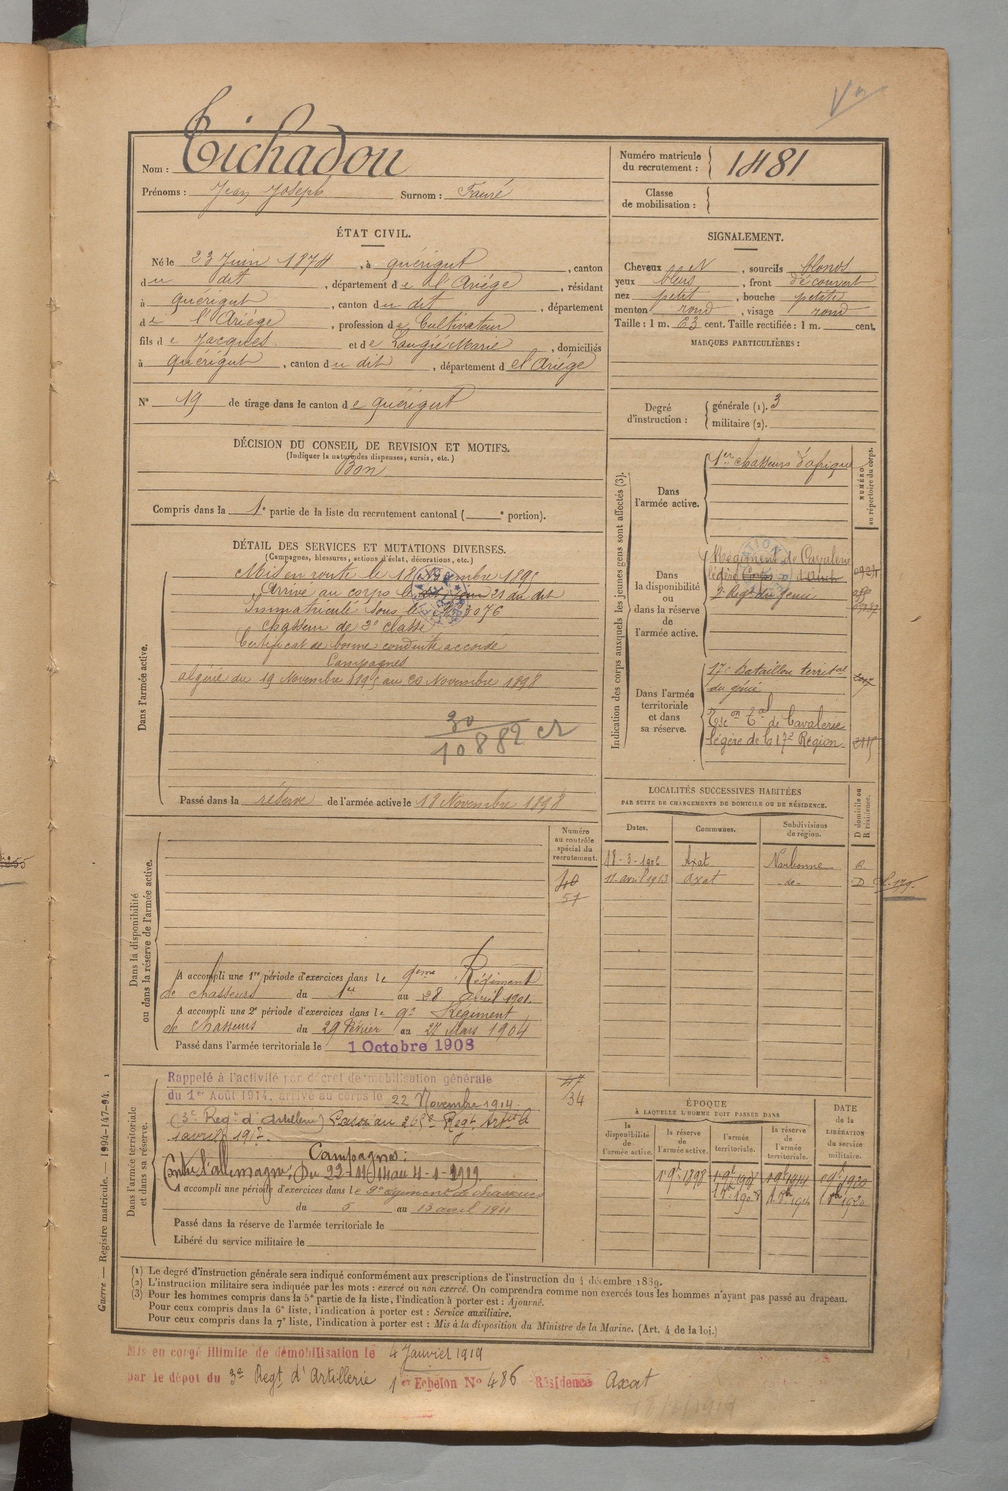 Nom : Tichadou
Prénoms : Jean Joseph Surnom : Fauré
Numéro matricule du recrutement : 1481
Classe de mobilisation :
ÉTAT CIVIL.
Né le 23 Juin 1874, à Quérigut, canton
du dit, département de l'Ariége, résidant
à Quérigut, canton du dit, département
de l'Ariége, profession de Cultivateur
fils de Jacques et de Laugié Marie, domiciliés
à Quérigut, canton du dit, département de l'Ariége
N° 19 de tirage dans le canton de Quérigut
DÉCISION DU CONSEIL DE REVISION ET MOTIFS.
(Indiquer la nature des dispenses, sursis, etc.)
Bon
Compris dans la 1e partie de la liste du recrutement cantonal ( e portion).
SIGNALEMENT.
Cheveux , sourcils blonds
yeux bleus, front découvert
nez petit, bouche petite
menton rond, visage rond
Taille : 1 m. 63 cent. Taille rectifiée : 1 m. cent.
MARQUES PARTICULIÈRES :
Degré d'instruction : générale (1). 3
militaire (2).
DÉTAIL DES SERVICES ET MUTATIONS DIVERSES.
(Campagnes, blessures, actions d'éclat, décorations, etc.)
Dans l'armée active.
Mis en route le 18 Novembre 1895
Arrivé au corps le 21 du dit
Immatriculé sous le N° 3076
Chasseur de 2e classe
Certificat de bonne conduite accordé
Campagnes
Algérie du 19 Novembre 1895 au 20 Novembre 1898
30
10882 cr
Passé dans la réserve de l'armée active le 18 Novembre 1898
Indication des corps auxquels les jeunes gens sont affectés (3).
NUMÉRO au répertoire du corps.
Dans l'armée active.
1er Chasseurs d'Afrique
Dans la disponibilité ou dans la réserve de l'armée active.
Régiment de Cavalerie
légère d'Auch
2e Régt du Génie
Dans l'armée territoriale et dans sa réserve.
17e Bataillon territal
du génie
de Cavalerie
légère de la 17e Région
LOCALITÉS SUCCESSIVES HABITÉES
PAR SUITE DE CHANGEMENTS DE DOMICILE OU DE RÉSIDENCE.
Dates. Communes. Subdivisions de région. D domicile ou R résidence.
18-3-1902 Axat Narbonne R
11 avril 1903 Axat do D
Dans la disponibilité ou dans la réserve de l'armée active.
Numéro au contrôle spécial du recrutement.
40
51
A accompli une 1re période d'exercices dans le 9eme Régiment
de chasseurs du 1er au 28 avril 1901.
A accompli une 2e période d'exercices dans le 9e Régiment
de Chasseurs du 29 Février au 27 Mars 1904
Passé dans l'armée territoriale le 1 Octobre 1908
Dans l'armée territoriale et dans sa réserve.
Rappelé à l'activité par décret de mobilisation générale
du 1er Août 1914, arrivé au corps le 22 Novembre 1914.
(3e Regt d'Artillerie) Passé au Regt
1 avril 1917.
Campagnes :
Contre l'Allemagne, Du 22-11-14 au 4-1-1919
A accompli une période d'exercices dans le 9e régiment de chasseurs
du 5 au 13 avril 1911
Passé dans la réserve de l'armée territoriale le
Libéré du service militaire le
47
34
ÉPOQUE
À LAQUELLE L'HOMME DOIT PASSER DANS
la disponibilité de l'armée active. la réserve de l'armée active. l'armée territoriale. la réserve de l'armée territoriale.
DATE de la LIBÉRATION du service militaire.
(1) Le degré d'instruction générale sera indiqué conformément aux prescriptions de l'instruction du 4 décembre 1889.
(2) L'instruction militaire sera indiquée par les mots : exercé ou non exercé. On comprendra comme non exercés tous les hommes n'ayant pas passé au drapeau.
(3) Pour les hommes compris dans la 5e partie de la liste, l'indication à porter est : Ajourné.
Pour ceux compris dans la 6e liste, l'indication à porter est : Service auxiliaire.
Pour ceux compris dans la 7e liste, l'indication à porter est : Mis à la disposition du Ministre de la Marine. (Art. 4 de la loi.)
Guerre — Registre matricule. — 1994-147-94.
Mis en congé illimité de démobilisation le 4 Janvier 1919
par le dépôt du 3e Regt d'Artillerie 1er Echelon N° 486 Résidence Axat